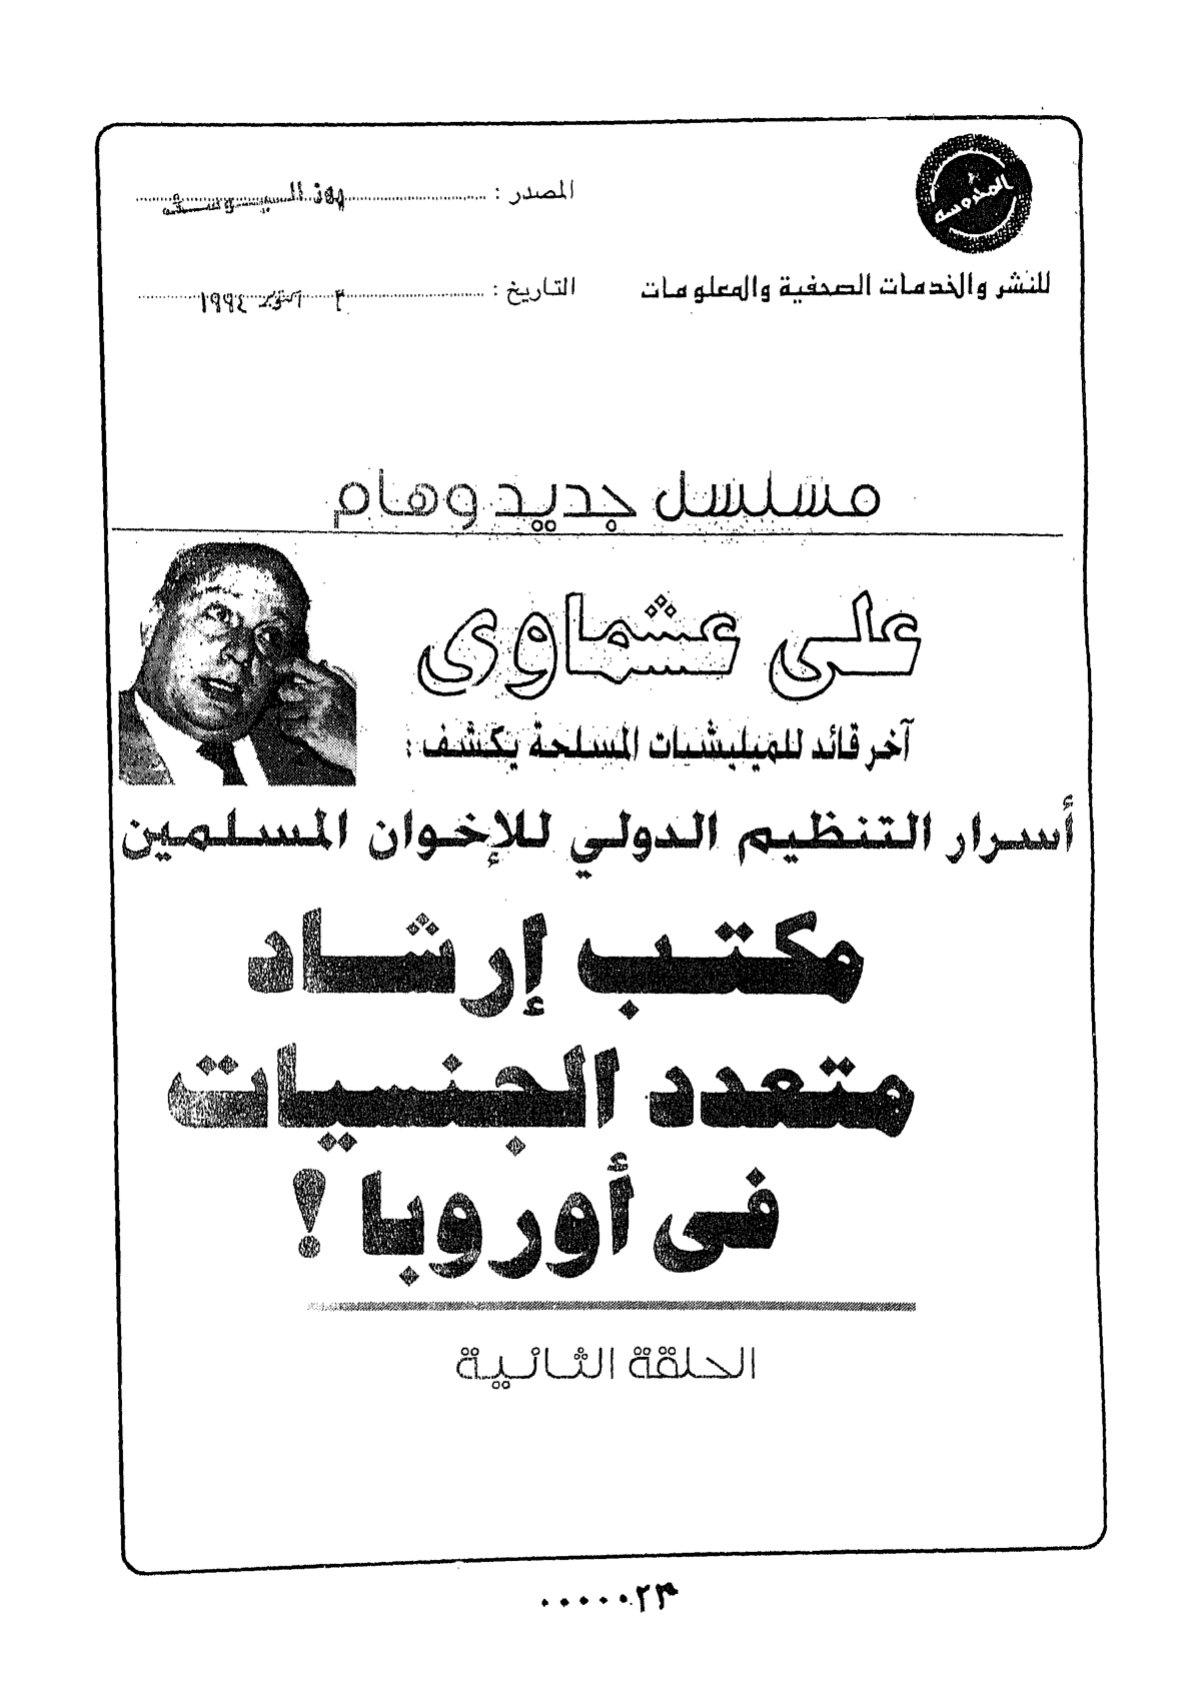 المحروسة
المصدر : روز اليوسف
للنشر والخدمات الصحفية والمعلومات
التاريخ : ٣ أكتوبر ١٩٩٤
مسلسل جديد وهام
على عشماوى
آخر قائد للميليشيات المسلحة يكشف :
أسرار التنظيم الدولي للإخوان المسلمين
مكتب إرشاد
متعدد الجنسيات
فى أوروبا !
الحلقة الثانية
٠٠٠٠٠٢٣